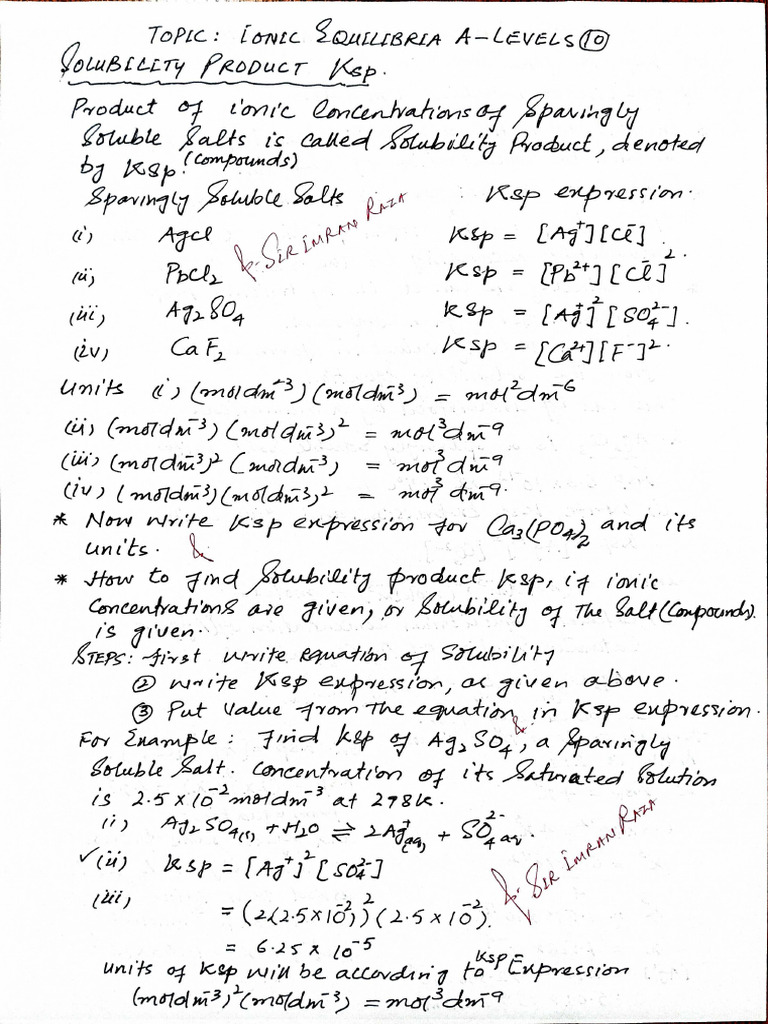 TOPIC: IONIC EQUILIBRIA A-LEVELS ⑩
SOLUBILITY PRODUCT Ksp.
Product of ionic Concentrations of Sparingly
Soluble Salts is called Solubility Product, denoted
by Ksp. (Compounds)
Sparingly Soluble Salts : Ksp expression.
(i) AgCl Ksp = [Ag⁺][Cl⁻]
(ii) PbCl₂ Ksp = [Pb²⁺][Cl⁻]².
SIR IMRAN RAZA
(iii) Ag₂SO₄ Ksp = [Ag⁺]²[SO₄²⁻].
(iv) CaF₂ Ksp = [Ca²⁺][F⁻]².
Units (i) (moldm⁻³)(moldm⁻³) = mol²dm⁻⁶
(ii) (moldm⁻³)(moldm⁻³)² = mol³dm⁻⁹
(iii) (moldm⁻³)²(moldm⁻³) = mol³dm⁻⁹
(iv) (moldm⁻³)(moldm⁻³)² = mol³dm⁻⁹.
* Now write Ksp expression for Ca₃(PO₄)₂ and its
units.
* How to find Solubility product Ksp, if ionic
Concentrations are given, or Solubility of The Salt (Compounds)
is given.
STEPS: first write equation of Solubility
② write Ksp expression, as given above.
③ Put value from The equation in Ksp expression.
For Example: Find Ksp of Ag₂SO₄, a Sparingly
Soluble Salt. Concentration of its Saturated Solution
is 2.5 x 10⁻² moldm⁻³ at 298k.
(i) Ag₂SO₄(s) + H₂O ⇌ 2Ag⁺(aq) + SO₄²⁻aq.
✓(ii) Ksp = [Ag⁺]²[SO₄²⁻]
SIR IMRAN RAZA
(iii) = (2(2.5x10⁻²))²(2.5x10⁻²).
= 6.25 x 10⁻⁵
units of Ksp will be according to Ksp Expression
(moldm⁻³)²(moldm⁻³) = mol³dm⁻⁹